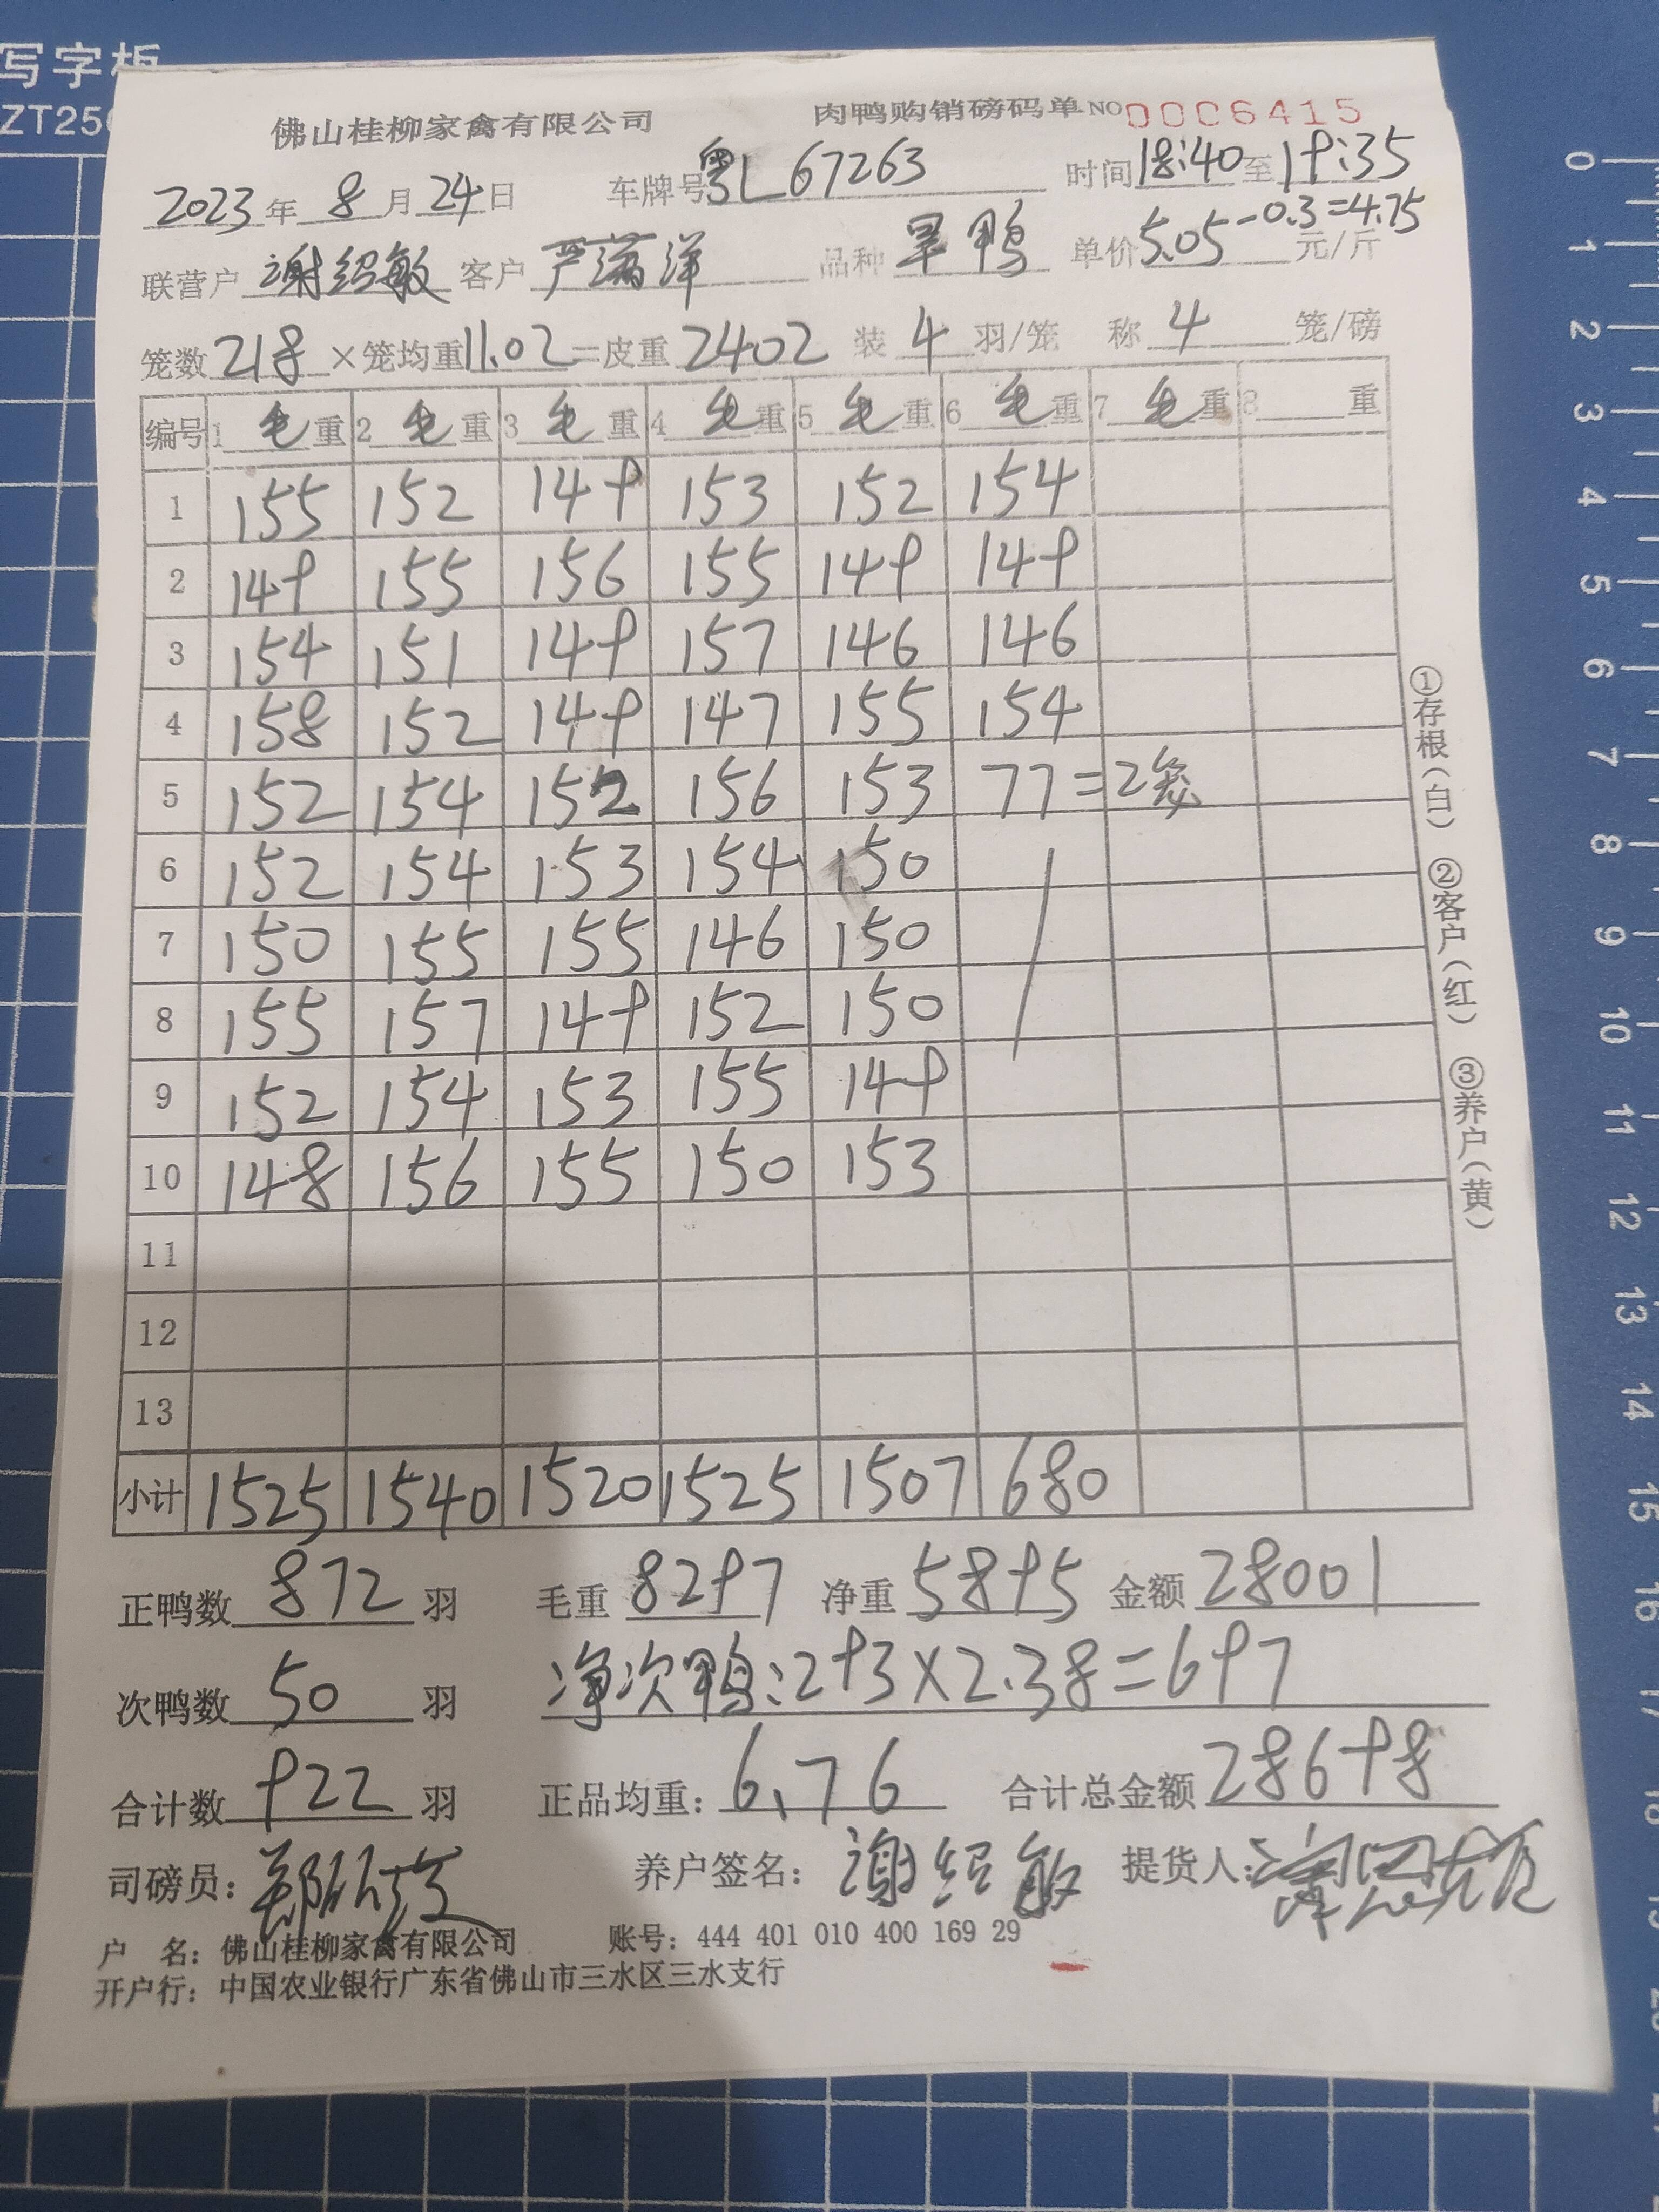 写字板
ZT25
佛山桂柳家禽有限公司 肉鸭购销磅码单 NO 0006415
2023年8月24日 车牌号粤L67263 时间18:40至19:35
联营户谢绍敏 客户严满洋 品种旱鸭 单价5.05-0.3=4.75元/斤
笼数218×笼均重11.02=皮重2402 装4羽/笼 称4笼/磅
编号 1毛重 2毛重 3毛重 4毛重 5毛重 6毛重 7毛重 8重
1 155 152 149 153 152 154
2 149 155 156 155 149 149
3 154 151 149 157 146 146
4 158 152 149 147 155 154
5 152 154 152 156 153 77=2笼
6 152 154 153 154 150
7 150 155 155 146 150
8 155 157 149 152 150
9 152 154 153 155 149
10 148 156 155 150 153
11
12
13
小计 1525 1540 1520 1525 1507 680
①存根(白) ②客户(红) ③养户(黄)
正鸭数872羽 毛重8297 净重5895 金额28001
次鸭数50羽 净次鸭:293×2.38=697
合计数922羽 正品均重:6.76 合计总金额28698
司磅员: 养户签名:谢绍敏 提货人:
户 名:佛山桂柳家禽有限公司 账号:444 401 010 400 169 29
开户行:中国农业银行广东省佛山市三水区三水支行
0
1
2
3
4
5
6
7
8
9
10
11
12
13
14
15
16
17
18
19